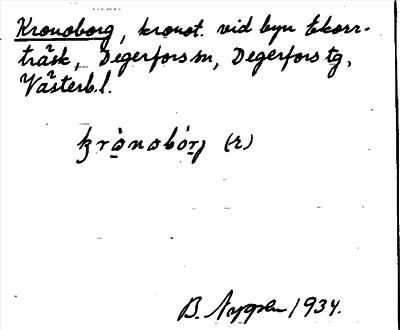 Kronoborg, kronot. vid byn Ekorr-
träsk, Degerfors sn, Degerfors tg,
Västerb.l.
krò̠nobór̠j (r)
B. 1934.